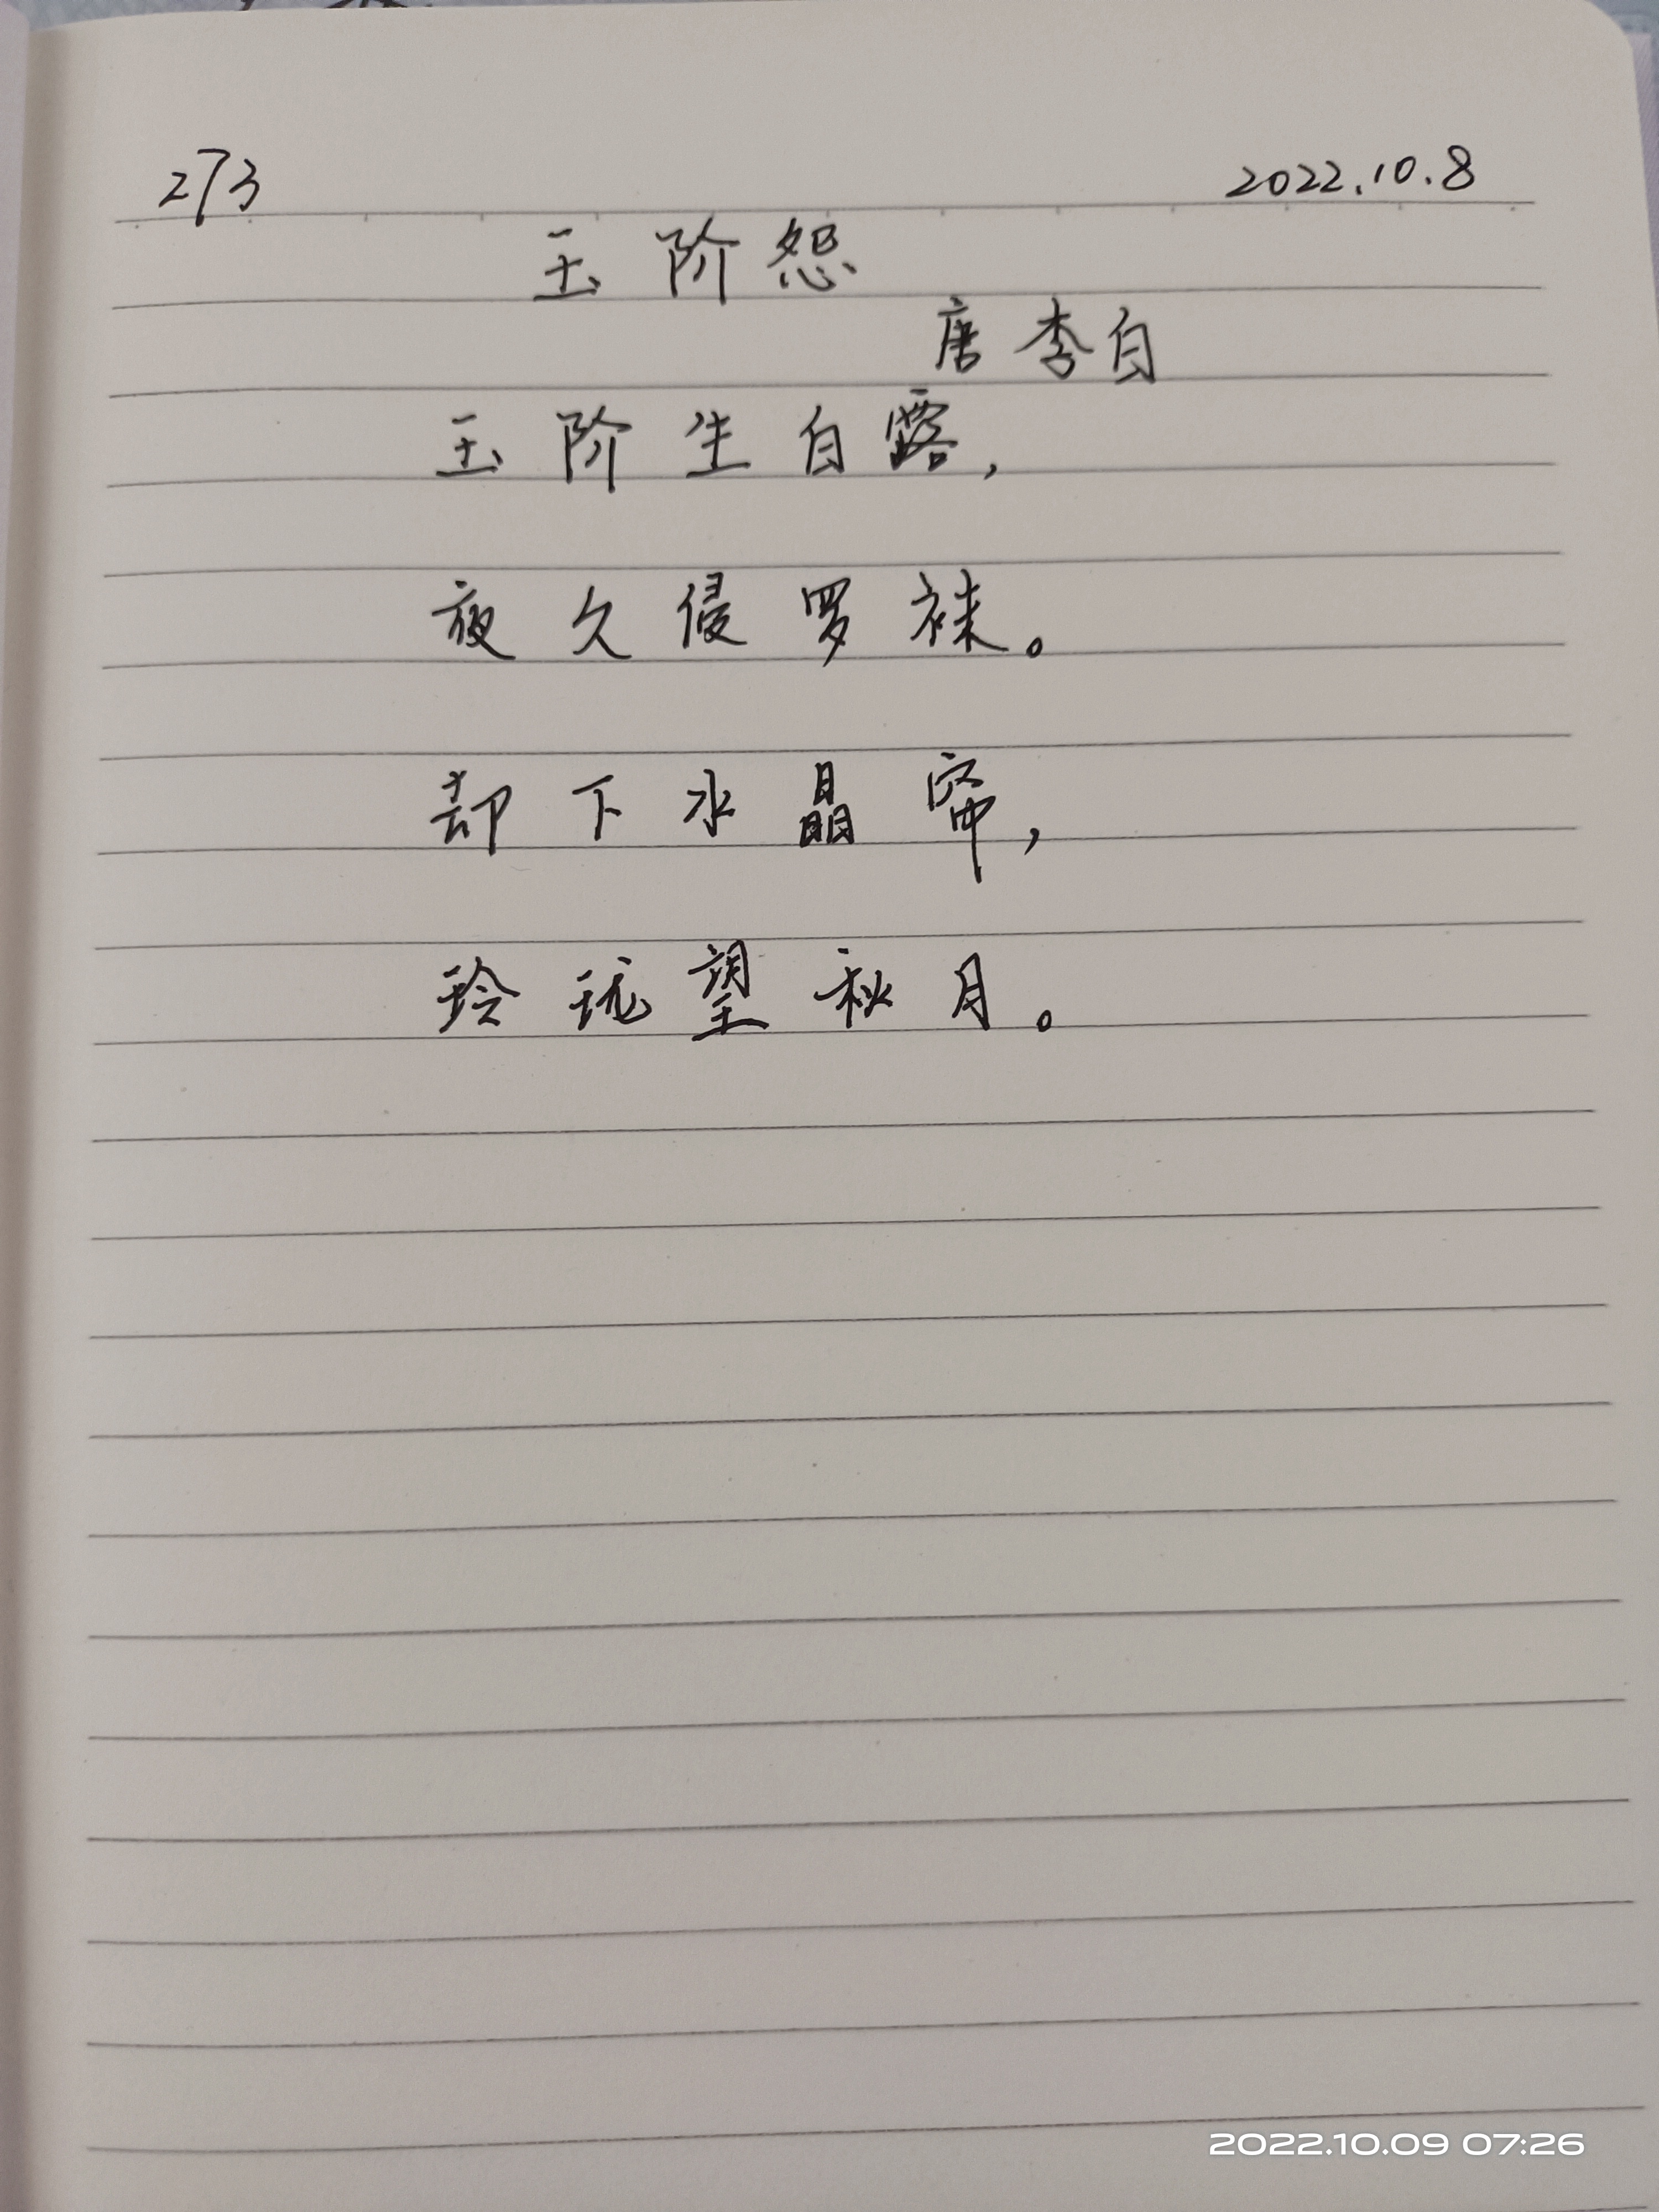 273 2022.10.8
玉阶怨
唐 李白
玉阶生白露，
夜久侵罗袜。
却下水晶帘，
玲珑望秋月。
2022.10.09 07:26